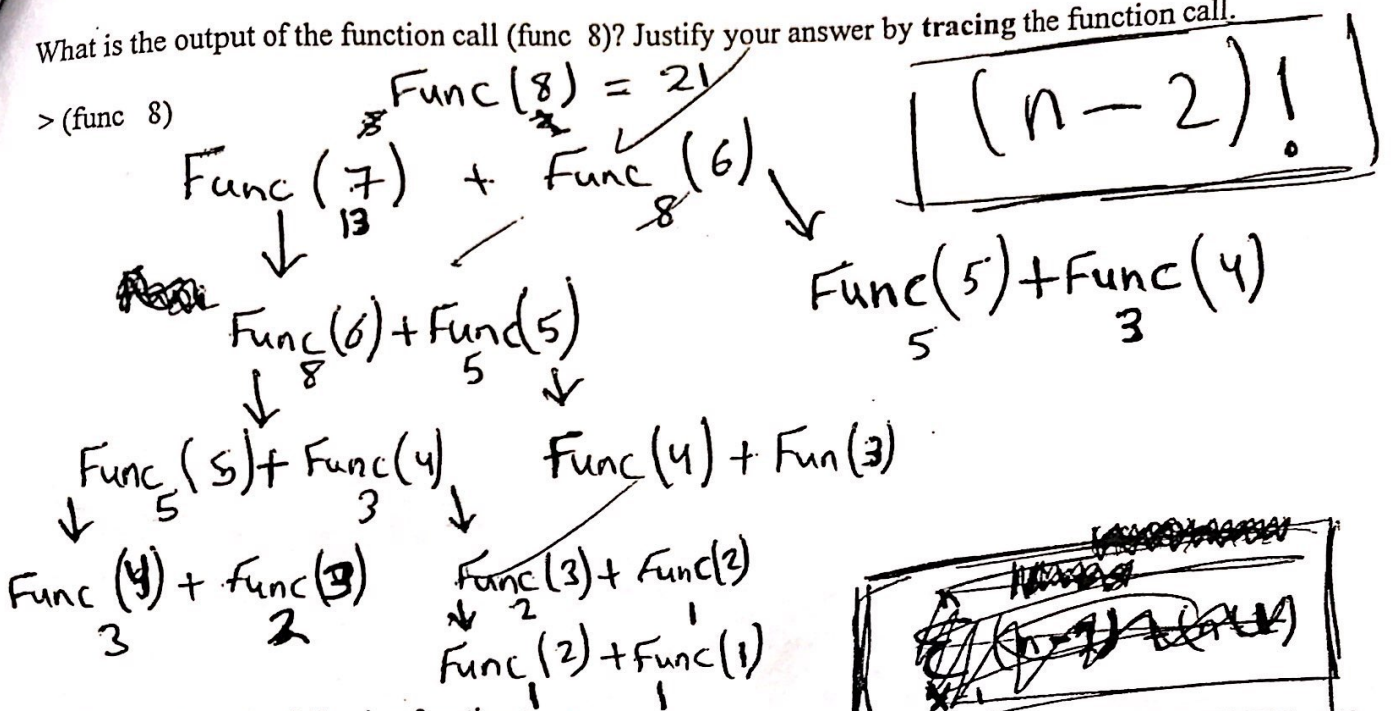 What is the output of the function call (func 8)? Justify your answer by tracing the function call.
> (func 8)
Func(8) = 21
(n-2)!
Func(7) + Func(6)
13 8
Func(6) + Func(5)
8 5
Func(5)+Func(4)
5 3
Func(5)+Func(4)
5 3
Func(4) + Fun(3)
Func(4) + func(3)
3 2
Func(3)+ Func(2)
2 1
Func(2) +Func(1)
1 1